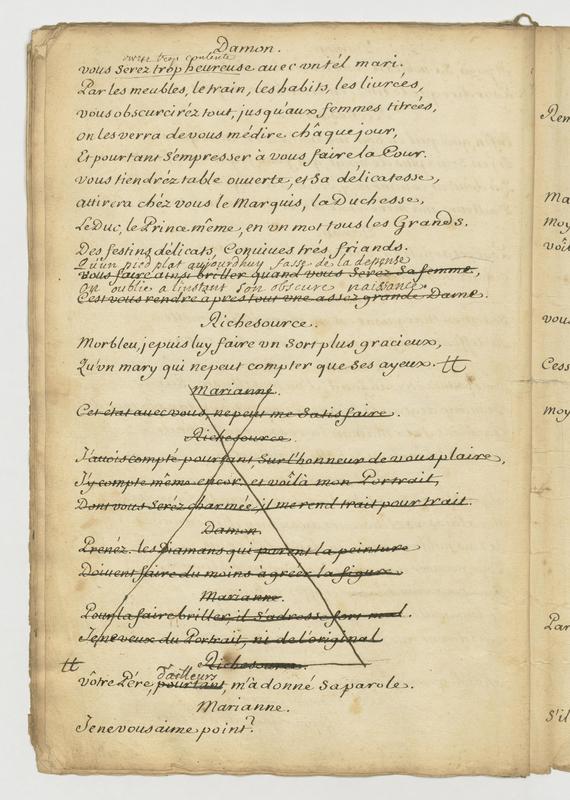 Damon.
vous Seréz trop heureuse auec vn tél mari.
Par les meubles, le train, les habits, les liurées,
vous obscurciréz tout, jusqu'aux femmes titrées,
on les verra de vous médire châque jour,
Et pourtant S'empresser à vous faire la Cour.
vous tiendréz table ouuerte, et Sa délicatesse,
attirera chéz vous le Marquis, la Duchesse,
Le Duc, le Prince même, en vn mot tous les Grands.
Des festins délicats, Conuiues trés friands.
Qu'un pied plat aujourdhuy fasse de la depense
vous faire ainsi briller quand vous Seréz Sa femme,
on oublie a linstant Son obscure naissance
C'est vous rendre aprés tout vne assez grande Dame.
Richesource.
Morbleu, je puis luy faire vn Sort plus gracieux,
Qu'vn mary qui ne peut compter que Ses ayeux. #
Marianne.
Cet état auec vous, ne peut me Satisfaire.
Richesource.
J'auois compté pourtant Sur l'honneur de vous plaire,
J'y compte même encor, et voilà mon Portrait,
Dont vous Seréz charmée, il me rend trait pour trait.
Damon.
Prenéz. les Diamans qui parent la peinture
Doiuent faire du moins agréer la figure.
Marianne.
Pour la faire briller, il S'adresse fort mal.
Je ne veux du Portrait, ni de l'original
Richesource.
# d'ailleurs
vôtre Pére, pourtant, m'a donné Sa parole.
Marianne.
Je ne vous aime point.
Rem
Ma
moy
voil
vous
Cess
moy
Par
S'il